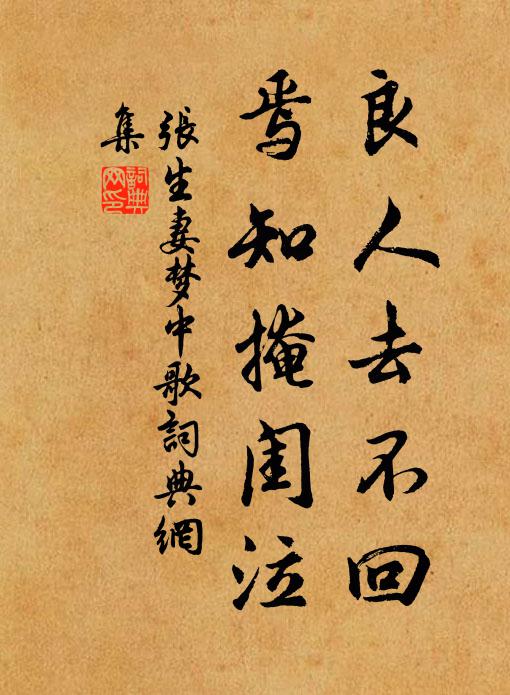 良人去不回
焉知掩闺泣
張生妻梦中歌詞典網
集
詞典网印